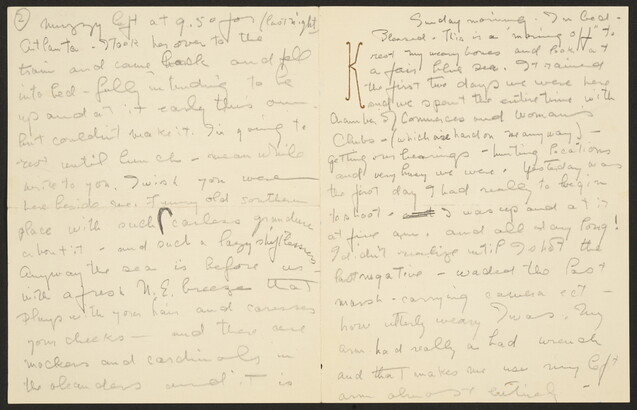 Sunday morning. In bed -
K
Blessed - this is a "morning off" to
rest my weary bones and look at
a fair blue sea. It rained
the first two days we were here
and we spent the entire time with
Chambers of Commerces and Womans
Clubs - (which are hard on me anyway) -
getting our bearings - hunting locations
and very busy we were. Yesterday was
the first day I had really to begin
to shoot - I was up and at it
at five a.m. and all day long!
I didn't realize until I shot the
last negative - waded the last
marsh - carrying camera ect -
how utterly weary I was. My
arm had really a bad wrench
and that makes me use my left
arm almost entirely -
2
Muzzy left at 9.50 for (last night)
Atlanta - I took her over to the
train and came back and fell
into bed - fully intending to be
up and at it early this a.m.
but couldn't make it. I'm going to
rest until lunch - meanwhile
write to you. I wish you were
here beside me. Funny old southern
place with such careless grandeur
about it - and such a lazy shiftlessness
Anyway the sea is before us -
with a fresh N.E. breeze that
plays with your hair and caresses
your cheeks - and there are
mockers and cardinals in
the oleanders and it is